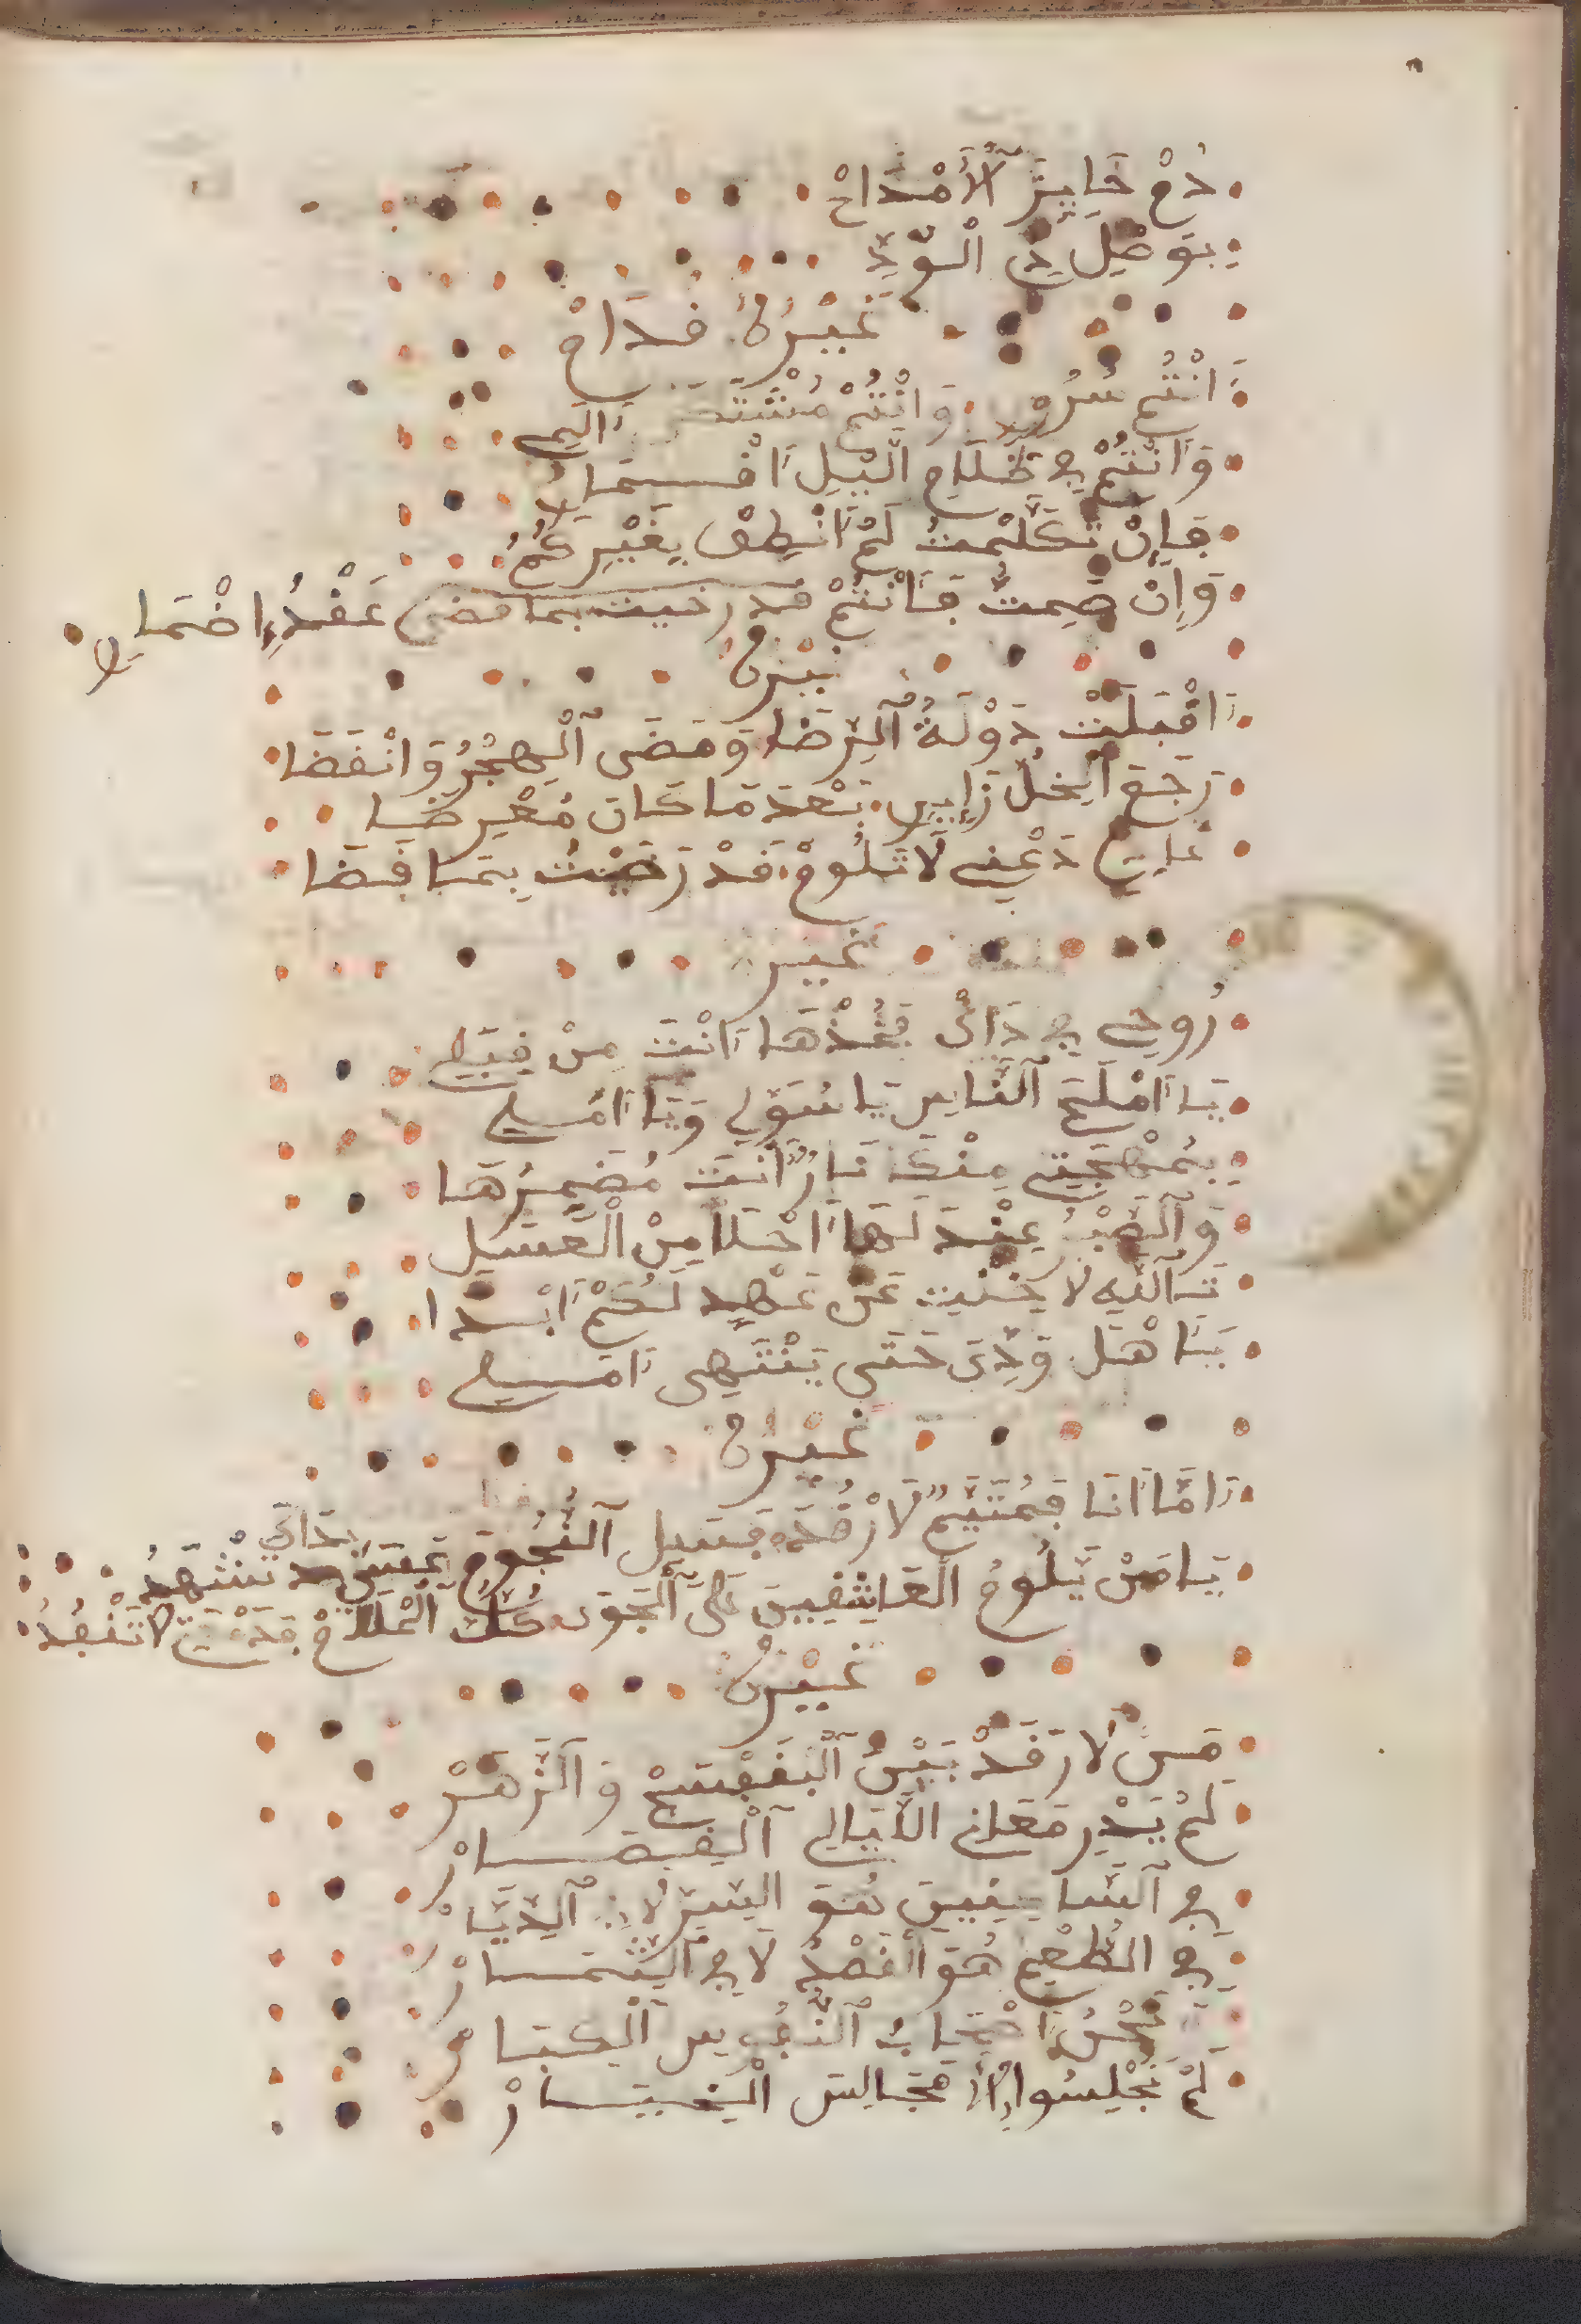 دُمْ حَايِزَ الْأَمْدَاحْ
بِوَصْلِ ذِي الْوِدِّ
غَيْرُهُ
أَنْتُمْ سُرُورِي وَأَنْتُمْ مُشْتَكَى أَلَمِي
وَأَنْتُمْ فِي ظَلَامِ الَّيْلِ أَقْمَارِي
فَإِنْ تَكَلَّمْتُ لَمْ أَنْطِقْ بِغَيْرِكُمُ
وَإِنْ صَمَتُّ فَأَنْتُمْ عَقْدُ إِضْمَارِي
غَيْرُهُ
أَقْبَلَتْ دَوْلَةُ الرِّضَا وَمَضَى الْهَجْرُ وَانْقَضَا
رَجَعَ الْخِلُّ زَايِرِي بَعْدَ مَا كَانَ مُعْرِضَا
دَعْنِي لَا تَلُومْ قَدْ رَضِيتُ بِمَا قَضَا
غَيْرُ
رُوحِي فِي ذَاكَ فَخُذْهَا أَنْتَ مِنْ قِبَلِي
يَا أَمْلَحَ النَّاسِ يَا سُؤْلِي وَيَا أَمَلِي
بِمُهْجَتِي مِنْكَ نَارٌ أَنْتَ مُضْمِرُهَا
وَالصَّبْرُ عِنْدَ لَهَا أَحْلَا مِنَ الْعَسَلِ
تَاللَّهِ لَا خُنْتُ عَنْ عَهْدٍ لَكُمْ أَبَدًا
يَا أَهْلَ وُدِّي حَتَّى يَنْتَهِي أَمَلِي
غَيْرُهُ
أَمَّا أَنَا فَمُتَيَّمٌ لَا أَرْقُدُ فَسَلِ النُّجُومَ بِذَاكَ تَشْهَدُ
يَا مَنْ يَلُومُ الْعَاشِقِينَ عَلَى الْهَوَى كُلُّ الْمَلَامْ لَا تَنْفَدُ
غَيْرُهُ
مَنْ لَا رَقَدْ بَيْنَ الْبَنَفْسَجْ وَالزَّهَرْ
لَمْ يَدْرِ مَعَانِي اللَّيَالِي الْقِصَارْ
فِي السَّاكِنِينَ هُوَ السِّرُّ لَا فِي الدِّيَارْ
فِي الطَّعْمِ هُوَ الْقَصْدُ لَا فِي الثِّمَارْ
نَحْنُ أَصْحَابُ النُّفُوسِ الْكِبَارْ
لَمْ نَجْلِسُوا إِلَّا مَجَالِسَ الْخِيَارْ